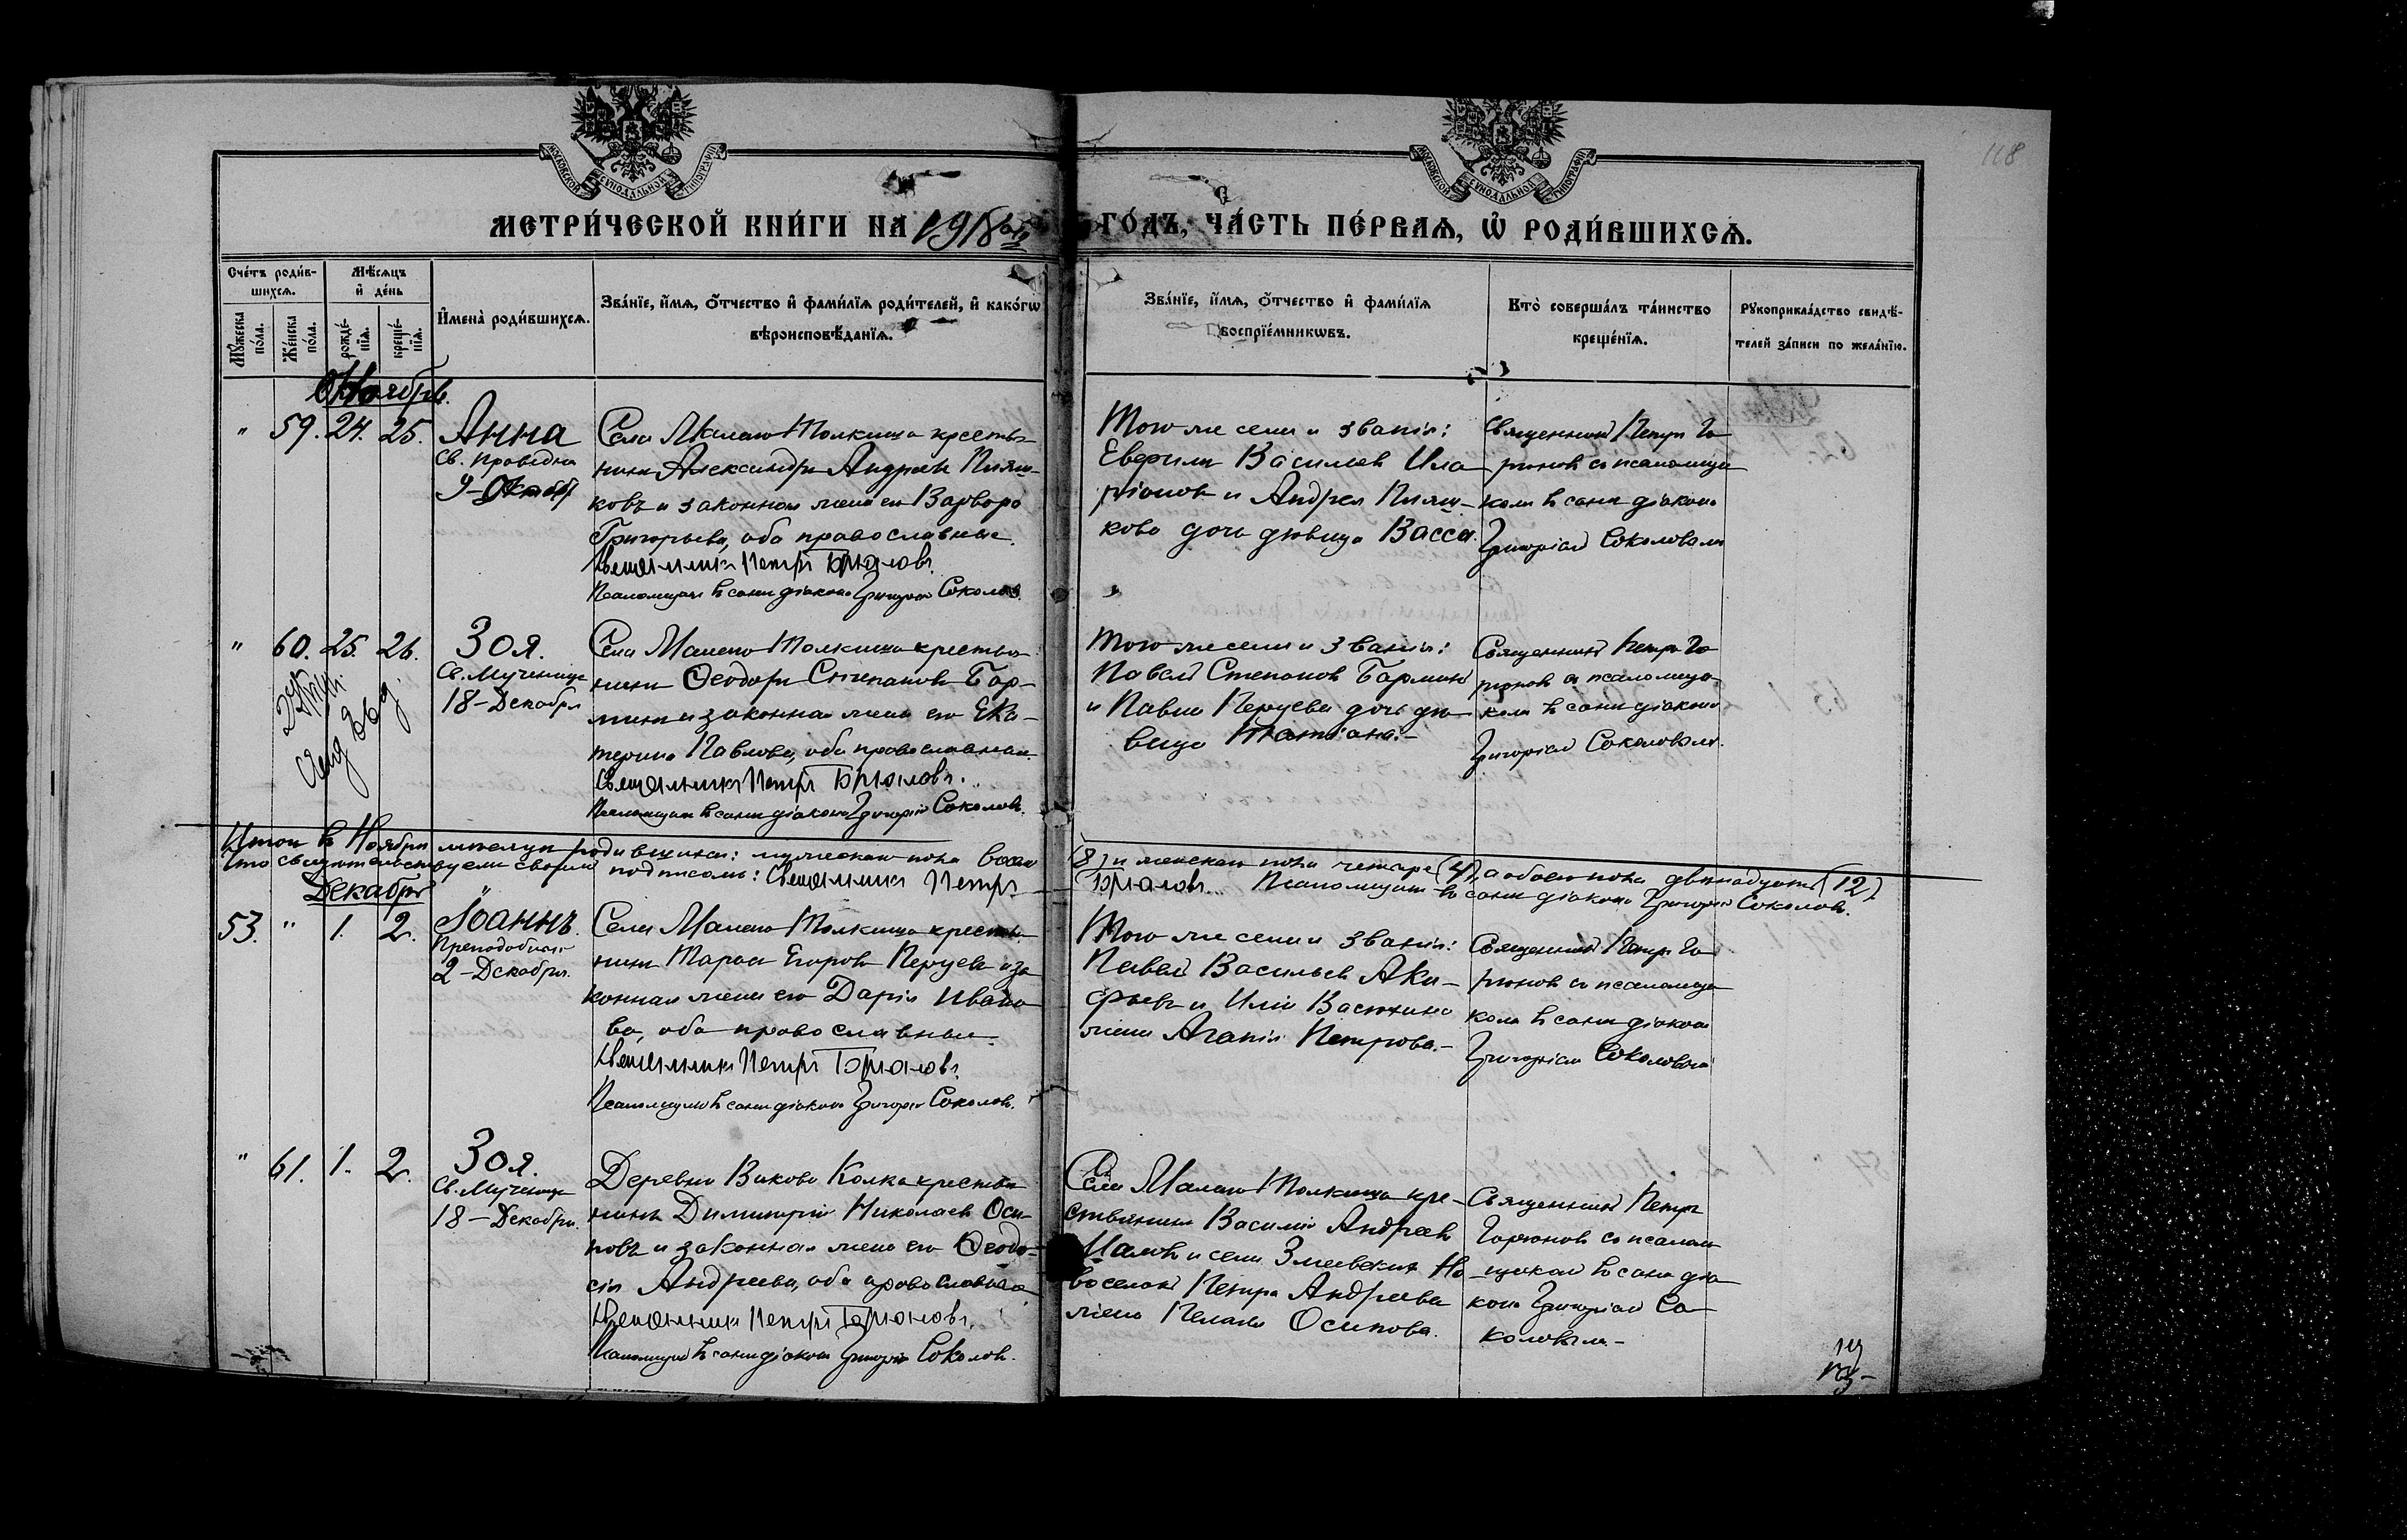 118
МОСКОВСКОЙ СѴНОДАЛЬНОЙ ТИПОГРАФІИ
МОСКОВСКОЙ СѴНОДАЛЬНОЙ ТИПОГРАФІИ
МЕТРИ́ЧЕСКОЙ КНИ́ГИ НА 1918 ГО́ДЪ, ЧА́СТЬ ПЕ́РВАѦ, Ѡ҆ РОДИ́ВШИХСѦ.
Сче́тъ роди́вшихсѧ.
Мꙋ́жеска по́ла.
Же́нска по́ла.
Мѣ́сѧцъ и҆ де́нь
рожде́нїѧ.
креще́нїѧ.
И҆мена̀ роди́вшихсѧ.
Зва́нїе, и҆́мѧ, ѻ҆́тчество и҆ фами́лїѧ роди́телей, и҆ како́гѡ
вѣроисповѣ́данїѧ.
Зва́нїе, и҆́мѧ, ѻ҆́тчество и҆ фами́лїѧ
воспрїе́мникѡвъ.
Кто̀ соверша́лъ та́инство
креще́нїѧ.
Рꙋкоприкла́дство свидѣ́-
телей за́писи по жела́нїю.
Ноябрь.
" 59. 24. 25.
Анна
Св. Праведна
9 - Октяб
Села Малаго Толкиша крестья-
нинъ Александръ Андреевъ Пиляш-
ковъ и законная жена его Варвара
Григорьева, оба православные.
Священникъ Петръ Горюновъ.
Псаломщикъ в санѣ діакона Григорій Соколовъ.
Того же села и званія:
Василіевъ Ила-
ріоновъ и Андрея Пиляш-
кова дочь дѣвица Васса.
Священникъ Петръ Го-
рюновъ съ псаломщи-
комъ въ санѣ діакона
Григоріемъ Соколовымъ
" 60. 25. 26.
Зоя.
Св. Мученица
18 - Декабря
Села Малаго Толкиша крестья-
нинъ Ѳеодоръ Степановъ Бар-
минъ и законная жена его Ека-
терина Павлова, оба православные.
Священникъ Петръ Горюновъ.
Псаломщикъ въ санѣ діакона Григорій Соколовъ.
Того же села и званія:
Павелъ Степановъ Барминъ
и Павла Перуева дочь дѣ-
вица Татіана.-
Священникъ Петръ Го-
рюновъ съ псаломщи-
комъ въ санѣ діакона
Григоріемъ Соколовымъ.
Итого въ Ноябрѣ мѣсяцѣ родившихся: мужескаго пола восемь (8) и женскаго пола четыре (4), а обоего пола двѣнадцать (12).
Что свидѣтельствуемъ своимъ подписомъ: Священникъ Петръ Горюновъ. Псаломщикъ въ санѣ діакона Григорій Соколовъ.
Декабрь
53. " 1. 2.
Іоаннъ.
Преподобнаго
2 - Декабря.
Села Малаго Толкиша крестья-
нинъ Тарасъ Егоровъ Перуевъ и за-
конная жена его Дарія Ивано-
ва, оба православные.
Священникъ Петръ Горюновъ.
Псаломщикъ въ санѣ діакона Григорій Соколовъ.
Того же села и званія:
Павелъ Васильевъ Аки-
фьевъ и Иліи
жена Агапія Петрова.-
Священникъ Петръ Го-
рюновъ съ псаломщи-
комъ въ санѣ діакона
Григоріемъ Соколовымъ
" 61. 1. 2.
Зоя.
Св. Мученица
18 - Декабря.
Деревни Быковъ Колка крестья-
нинъ Димитрій Николаевъ Оси-
повъ и законная жена его Ѳеодо-
сія Андреева, оба православные
Священникъ Петръ Горюновъ.
Псаломщикъ въ санѣ діакона Григорій Соколовъ.
Села Малаго Толкиша кре-
стьянинъ Василій Андреевъ
и села Змеевскихъ Но-
воселокъ Петра Андреева
жена Пелагія Осипова.
Священникъ Петръ
Горюновъ съ псалом-
щикомъ въ санѣ діа-
кона Григоріемъ Со-
коловымъ.-